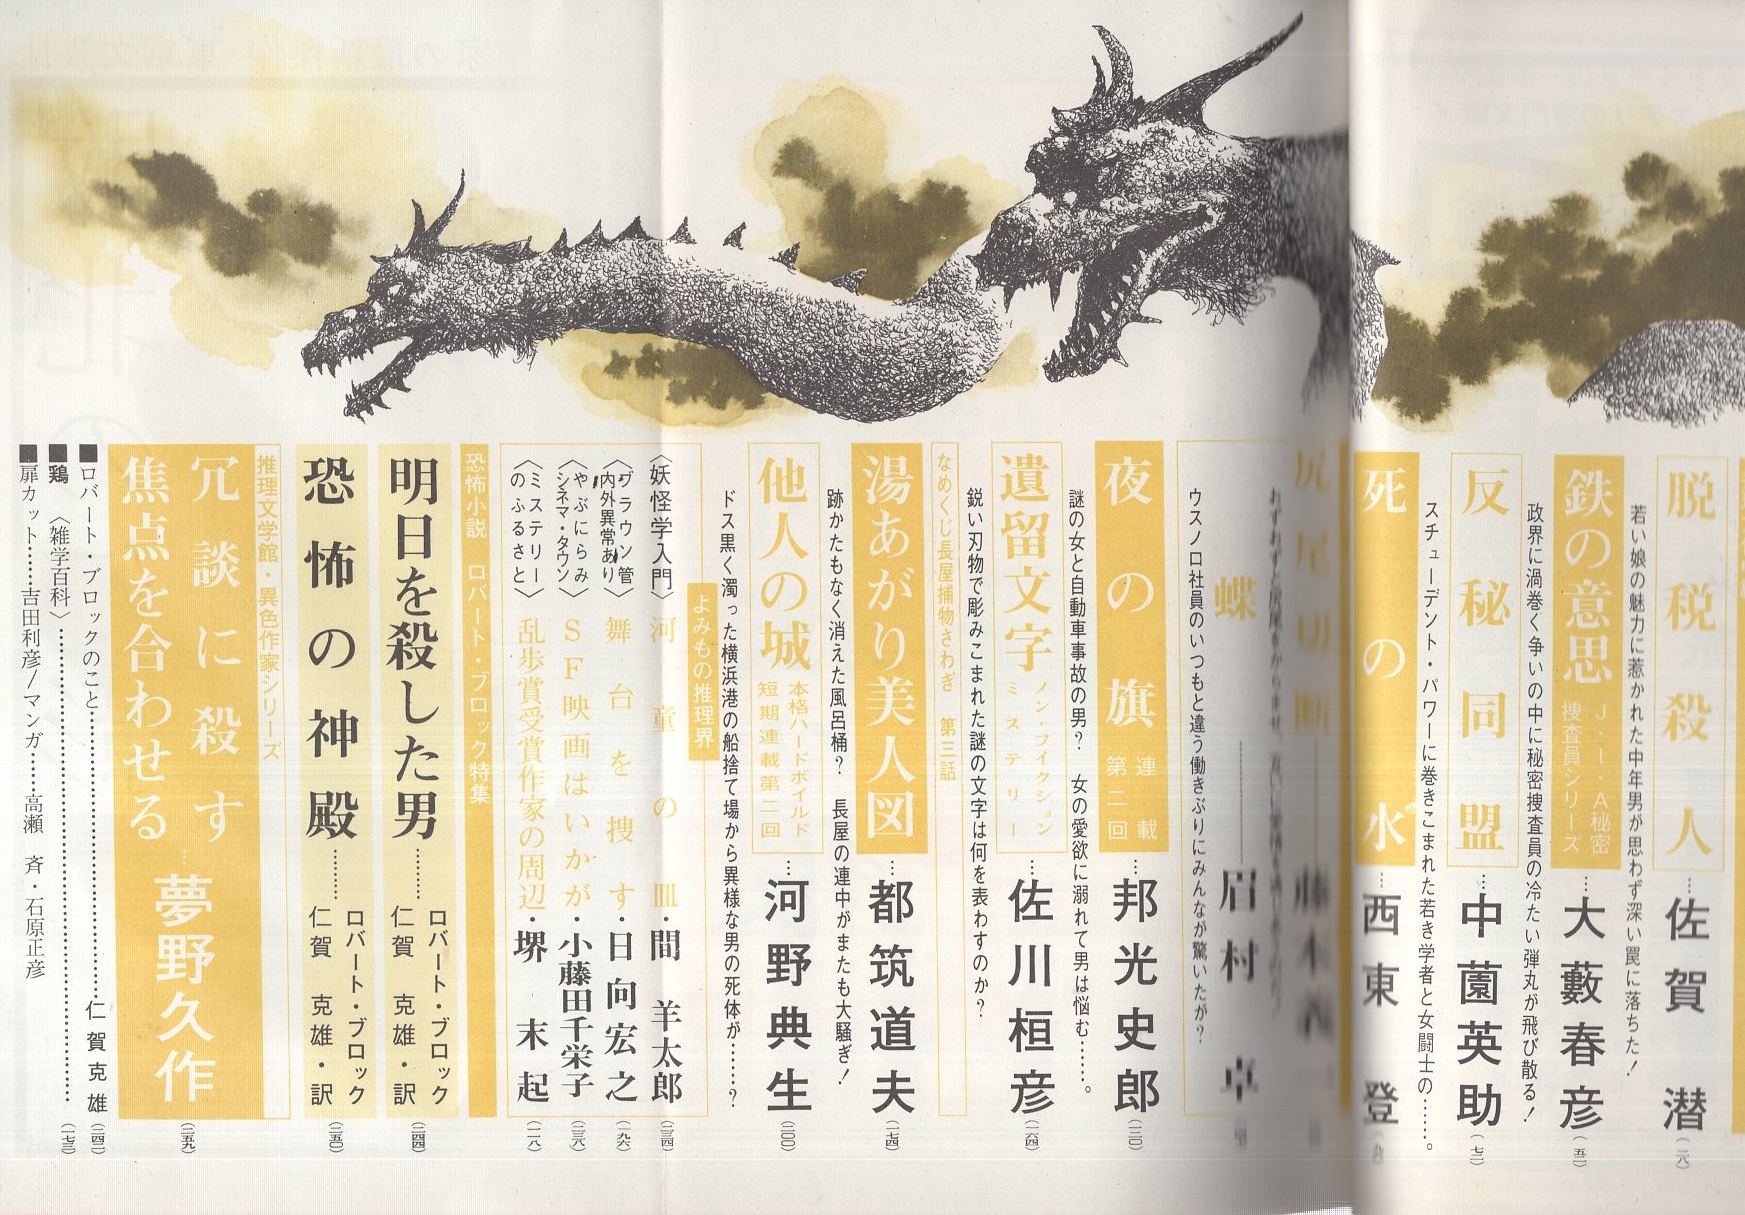 脱税殺人
佐賀 潜
(二八)
若い娘の魅力に惹かれた中年男が思わず深い罠に落ちた！
鉄の意思
J・I・A秘密
捜査員シリーズ
…大藪春彦
(五二)
政界に渦巻く争いの中に秘密捜査員の冷たい弾丸が飛び散る！
反秘同盟
…中薗英助
(七二)
スチューデント・パワーに巻きこまれた若き学者と女闘士の……。
死の水
…西東 登
尻尾切断
蝶
眉村 卓
ウスノロ社員のいつもと違う働きぶりにみんなが驚いたが？
夜の旗
連載
第二回
…邦光史郎
(一二〇)
謎の女と自動車事故の男？ 女の愛欲に溺れて男は悩む……。
遺留文字
ノン・フイクション
ミステリー
…佐川桓彦
(一六四)
鋭い刃物で彫みこまれた謎の文字は何を表わすのか？
なめくじ長屋捕物さわぎ 第三話
湯あがり美人図
…都筑道夫
(一七四)
跡かたもなく消えた風呂桶？ 長屋の連中がまたも大騒ぎ！
他人の城
本格ハードボイルド
短期連載第二回
…河野典生
(二〇〇)
ドス黒く濁った横浜港の船捨て場から異様な男の死体が……？
よみもの推理界
〈妖怪学入門〉河童の皿・間 羊太郎
(二三四)
〈ブラウン管
内外異常あり〉舞台を捜す・日向宏之
(一九六)
〈やぶにらみ
シネマ・タウン〉SF映画はいかが・小藤田千栄子
(二三八)
〈ミステリー
のふるさと〉乱歩賞受賞作家の周辺・堺 末起
(一一八)
恐怖小説 ロバート・ブロック特集
明日を殺した男
ロバート・ブロック
仁賀 克雄・訳
(二四四)
恐怖の神殿
ロバート・ブロック
仁賀 克雄・訳
(二五〇)
推理文学館・異色作家シリーズ
冗談に殺す
焦点を合わせる
…夢野久作
(二五九)
■ロバート・ブロックのこと……仁賀克雄
(二四二)
■鶏〈雑学百科〉……
(一七三)
■扉カット……吉田利彦／マンガ……高瀬 斉・石原正彦